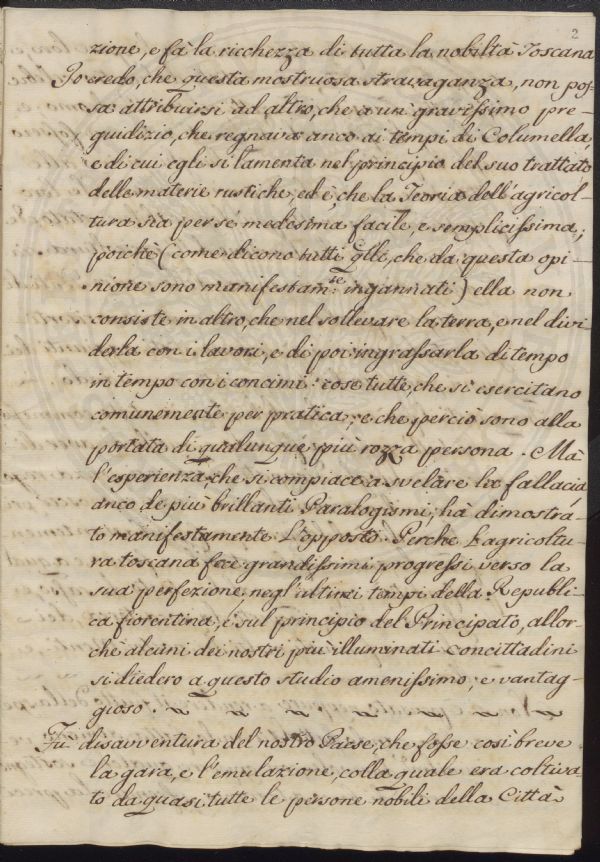 2
zione, e fà la ricchezza di tutta la nobiltà Toscana
Io credo, che questa mostruosa stravaganza, non pos-
sa attribuirsi ad altro, che a un gravissimo pre-
guidizio, che regnava anco ai tempi di Columella,
e di cui egli si lamenta nel principio del suo trattato
delle materie rustiche, ed è, che la Teoria dell'agricol-
tura sia per sé medesima facile, e semplicissima;
poichè (come dicono tutti qlli, che da questa opi-
nione sono manifestam.te ingannati) ella non
consiste in altro, che nel sollevare la terra, e nel divi-
derla con i lavori, e di poi ingrassarla di tempo
in tempo con i concimi: cose tutte, che si esercitano
comunemente per pratica, e che perciò sono alla
portata di qualunque più rozza persona. Mà
l'esperienza, che si compiace a svelare la fallacia
anco de più brillanti Paralogismi, hà dimostra-
to manifestamente L'opposto. Perche L'agricoltu-
ra toscana fece grandissimi progressi verso la
sua perfezione negl'ultimi tempi della Republi-
ca fiorentina, e sul principio del Principato, allor-
chè alcuni dei nostri più illuminati concittadini
si diedero a questo studio amenissimo, e vantag-
gioso.
Fù disavventura del nostro Paese, che fosse così breve
la gara, e l'emulazione, colla quale era coltiva-
to da quasi tutte le persone nobili della Città